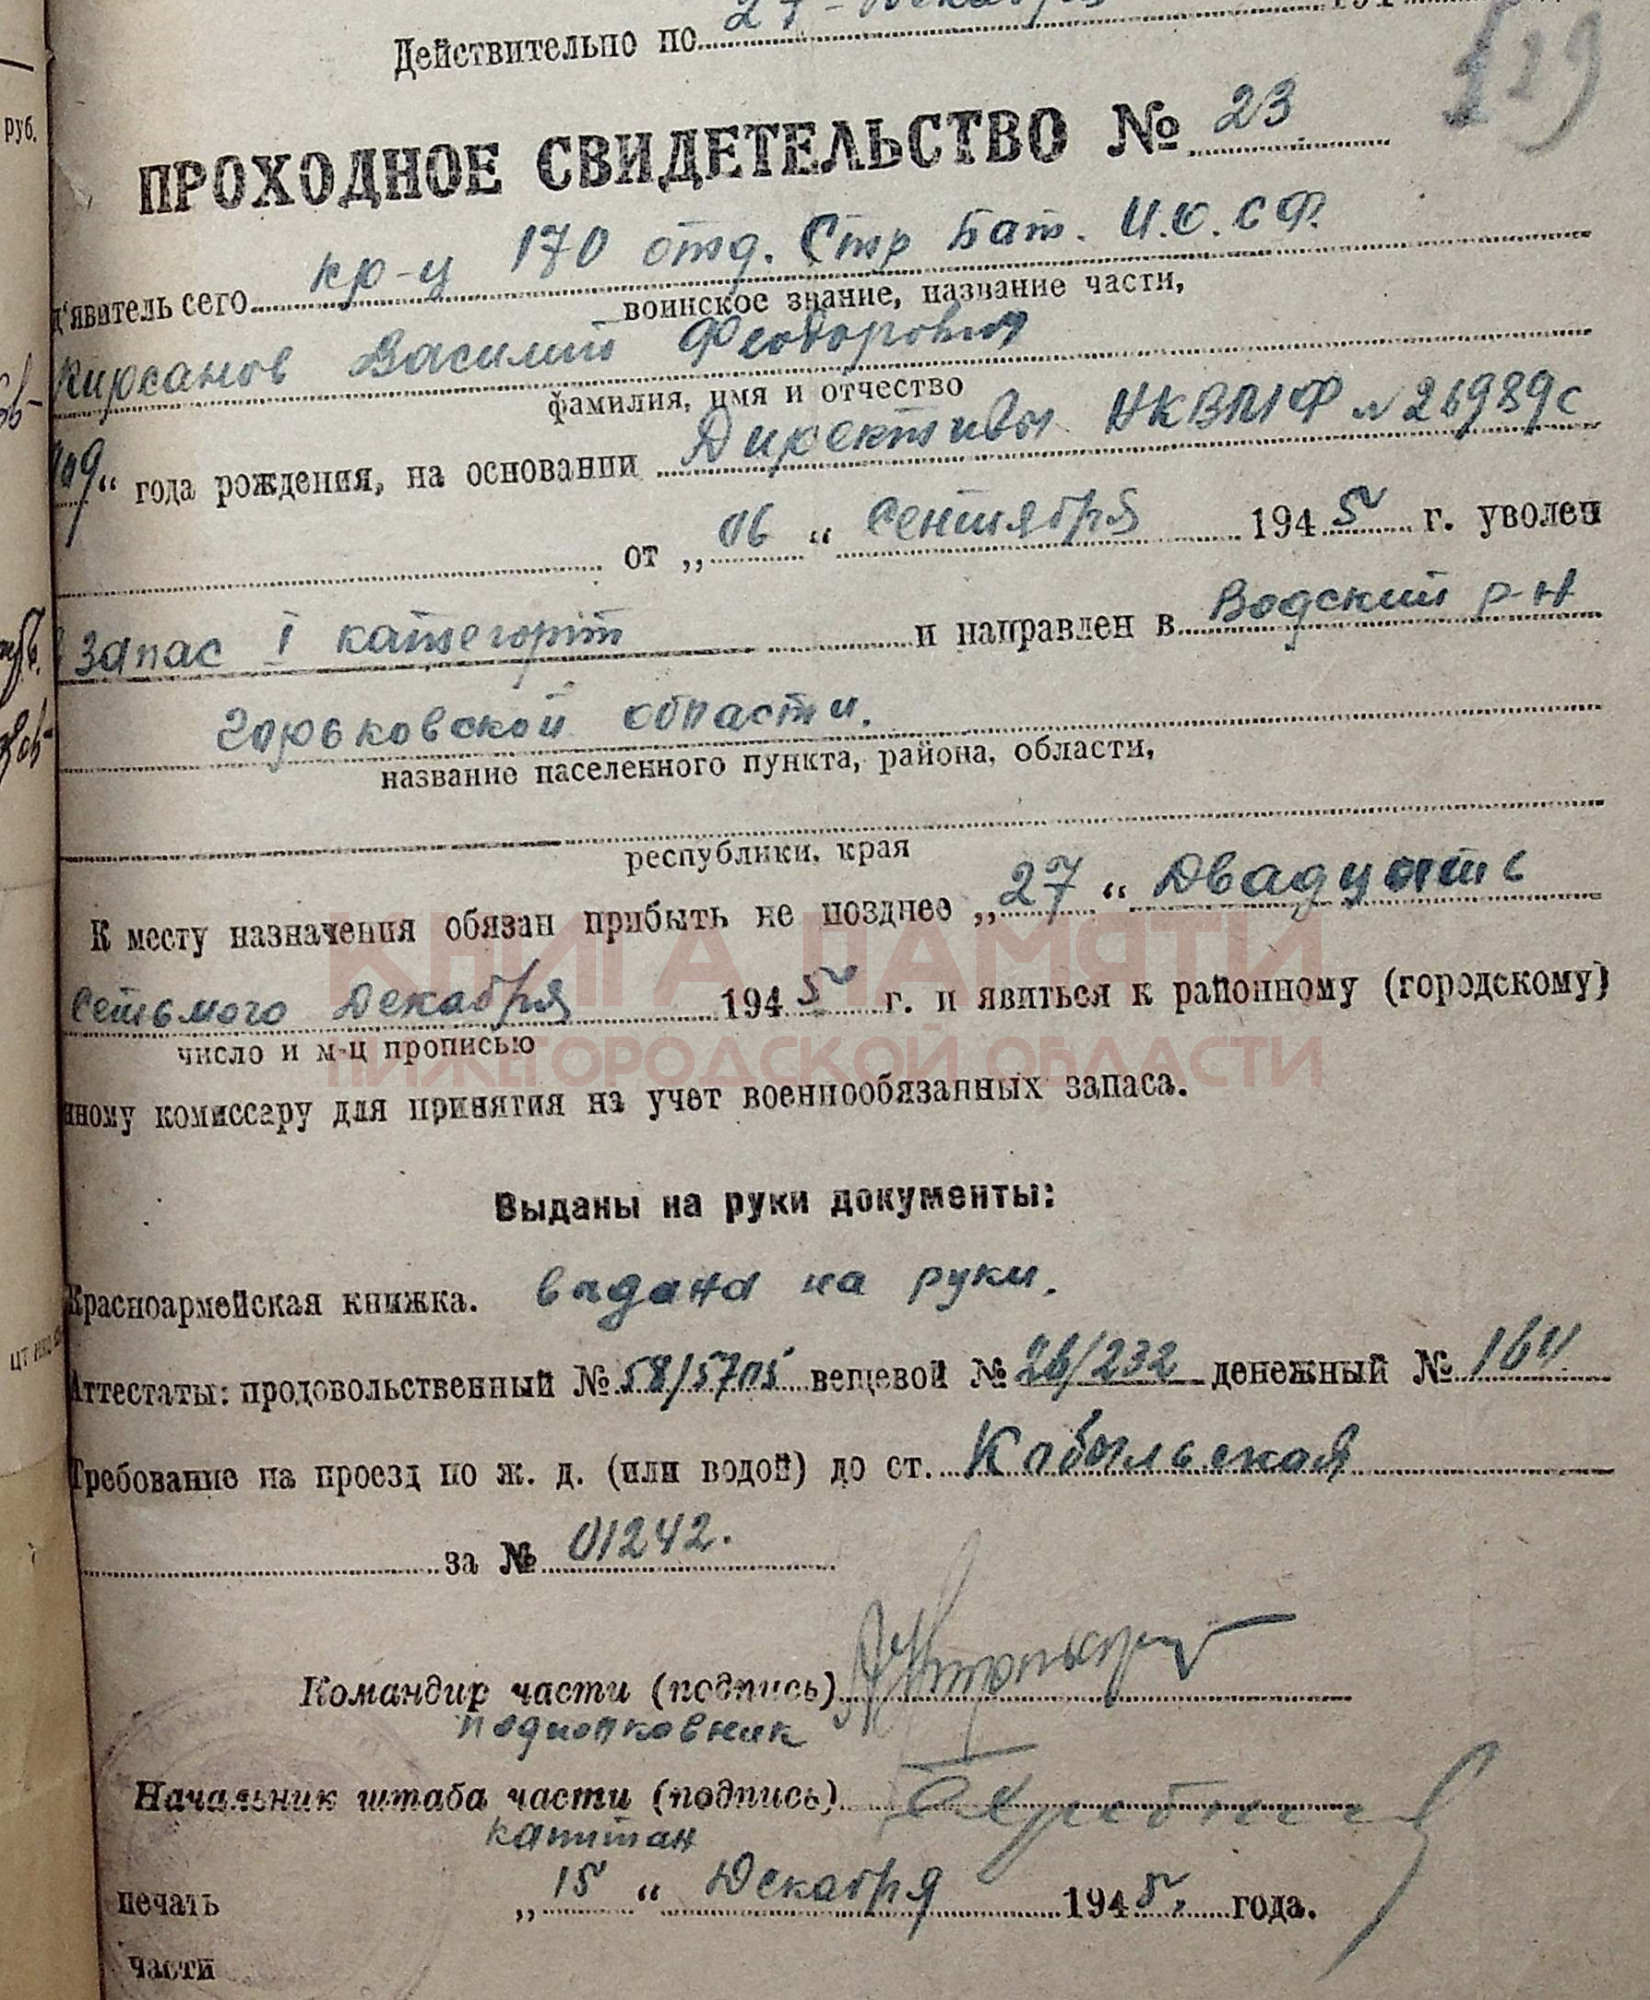 Действительно по 27 декабря 194
129
ПРОХОДНОЕ СВИДЕТЕЛЬСТВО № 23
руб.
д'явитель сего кр-ц 170 отд. Стр Бат. И.О.СФ.
воинское звание, название части,
Кирсанов Василий Феодорович
фамилия, имя и отчество
09" года рождения, на основании Директивы НКВМФ № 26989с
от „06" Сентября 1945 г. уволен
Запас I категории и направлен в Водский р-н
Горьковской области.
название населенного пункта, района, области,
республики, края
К месту назначения обязан прибыть не позднее „27" Двадцать
Сетьмого Декабря 1945 г. и явиться к районному (городскому)
число и м-ц прописью
нному комиссару для принятия на учет военнообязанных запаса.
КНИГА ПАМЯТИ
НИЖЕГОРОДСКОЙ ОБЛАСТИ
Выданы на руки документы:
Красноармейская книжка. выдана на руки.
Аттестаты: продовольственный № 58/5705 вещевой № 26/232 денежный № 164
Требование на проезд по ж. д. (или водой) до ст. Кобыльская
за № 01242.
Командир части (подпись)
подполковник
Начальник штаба части (подпись)
капитан
„15" Декабря 1945, года.
печать
части